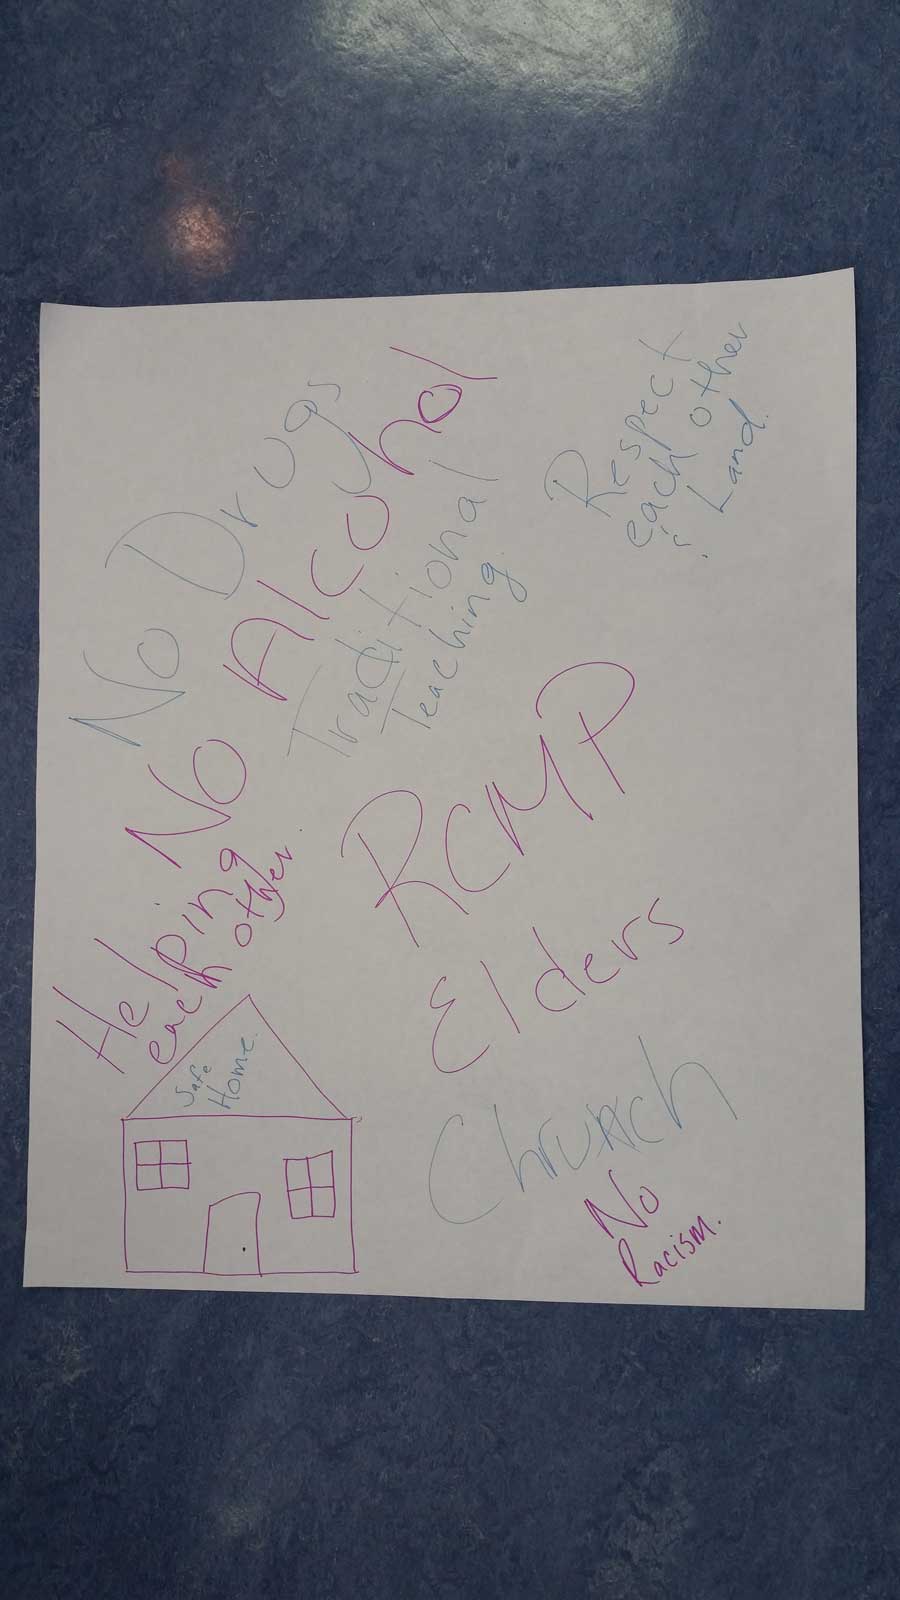 No Drugs
No Alcohol
Traditional
Teaching.
Respect
each other
Land.
Helping
each other.
RCMP
Elders
Safe
Home.
No
Racism.